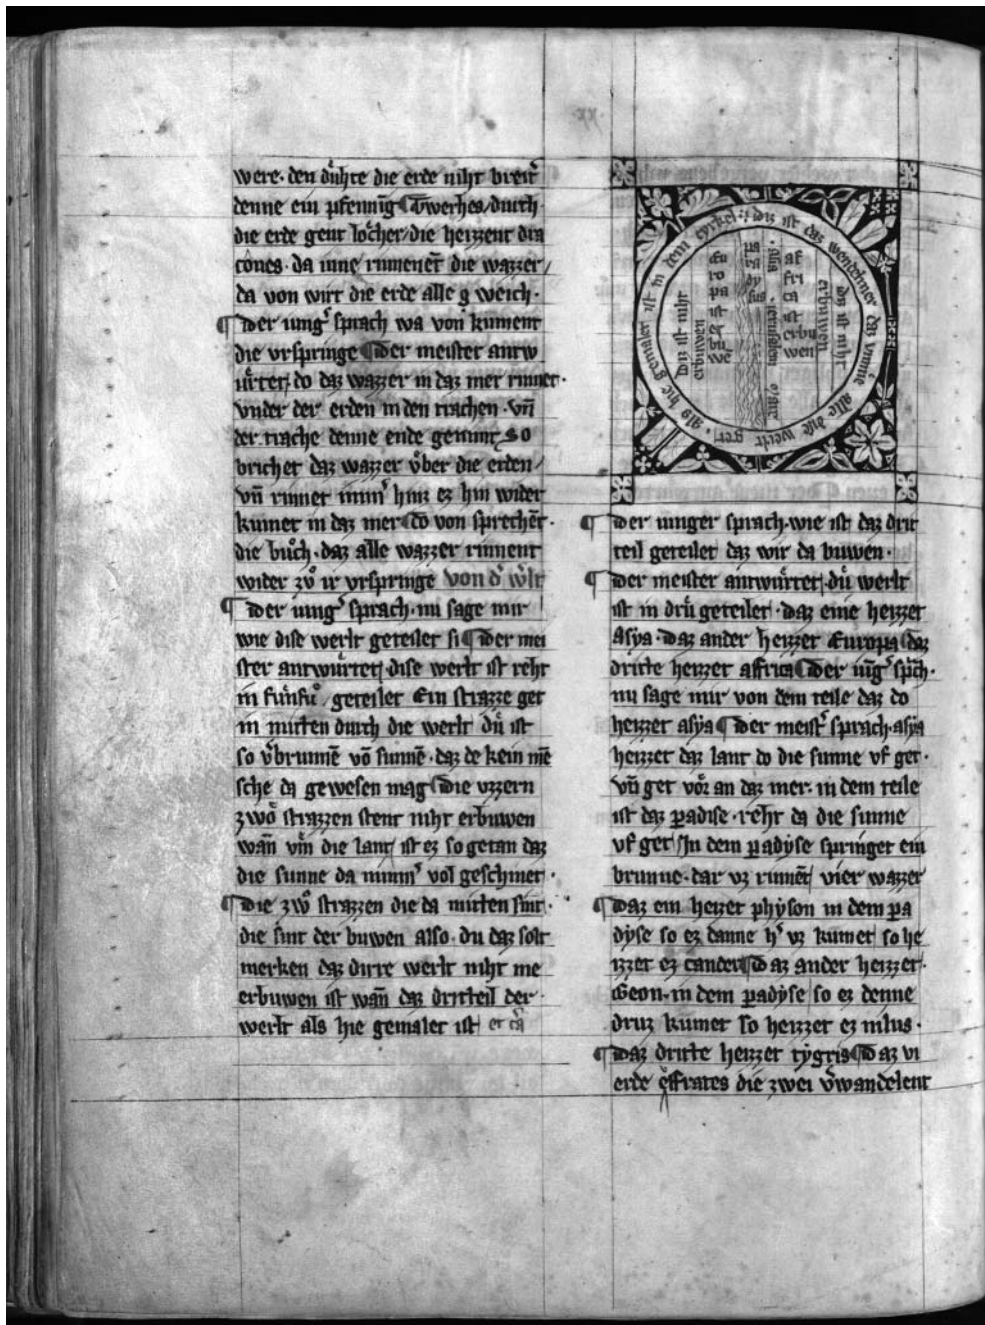 were. den duͤhte die erde niht breit̾
denne ein pfennīg ¶ Twerhes/durch
die erde gent loͤcher/die heizzent dra
cones. da inne rinnenēt die wazzer/
da von wirt die erde alle g weich.
¶ Der iung̾ sprach wa von kument
die vrspringe ¶ Der meister antw
uͤrtet/ do daz wazzer in daz mer rinnet.
vnder der erden in den trachen. vn̄
der trache denne ende genimt so
brichet daz wazzer vͤber die erden/
vn̄ rinnet imm̾ hinz ez hin wider
kumet in daz mer ¶ Do von sprechēt.
die buͦch. daz alle wazzer rinnent
wider zvͦ ir vrspringe von d̾ w̾lt
¶ Der iung̾ sprach. nu sage mir
wie dise werlt geteilet si ¶ Der mei
ster antwuͤrtet/ dise werlt ist reht
in fuͤnfiu geteilet Ein strazze get
in mitten durch die werlt duͤ ist
so v̾brunnē vō sunnē. daz de kein mē
sche da gewesen mag ¶ Die vzzern
zwoͦ strazzen stent niht erbuwen
wan̄ vm̄ die lant/ ist ez so getan daz
die sunne da nimm̾ vol geschinet.
¶ Die zwoͦ strazzen die da mitten sint.
die sint der buwen also. du daz solt
merken daz dirre werlt niht me
erbuwen ist wan̄ daz dritteil der
werlt als hie gemalet ist et c̄a
als hie gemalet ist in dem cyrkel: diz ist daz wendelmer daz vmme alle dise werlt get
diz ist niht
erbuwen
Eu
ro
pa
ist
er
bu
wē
pa
ra
dy
sus.
asia. ierusalem
af
fri
ca
ist
erbu
wen
diz ist niht
erbuwen
¶ Der iunger sprach. wie ist daz drit
teil geteilet daz wir da buwen.
¶ Der meister antwuͤrtet/ duͤ werlt
ist in druͤ geteilet. daz eine heizzet
Asya. daz ander heizzet Europa ¶ daz
dritte heizzet affrica ¶ Der iūg̾ sp̄ch.
nu sage mir von dem teile daz do
heizzet asya ¶ Der meist̾ sprach. asya
heizzet daz lant do die sunne vf get.
vn̄ get voͤr an daz mer. in dem teile
ist daz padise. reht da die sunne
vf get/ In dem padyse springet ein
brunne. dar vz rinnēt/ vier wazzer
¶ Daz ein heizet physon in dem pa
dyse so ez danne h̾ vz kumet/ so he
izzet ez candes ¶ Daz ander heizzet.
Geon. in dem padyse/ so ez denne
druz kumet so heizzet ez nilus.
¶ Daz dritte heizzet tygris ¶ Daz vi
erde effrates die zwei v̾wandelent